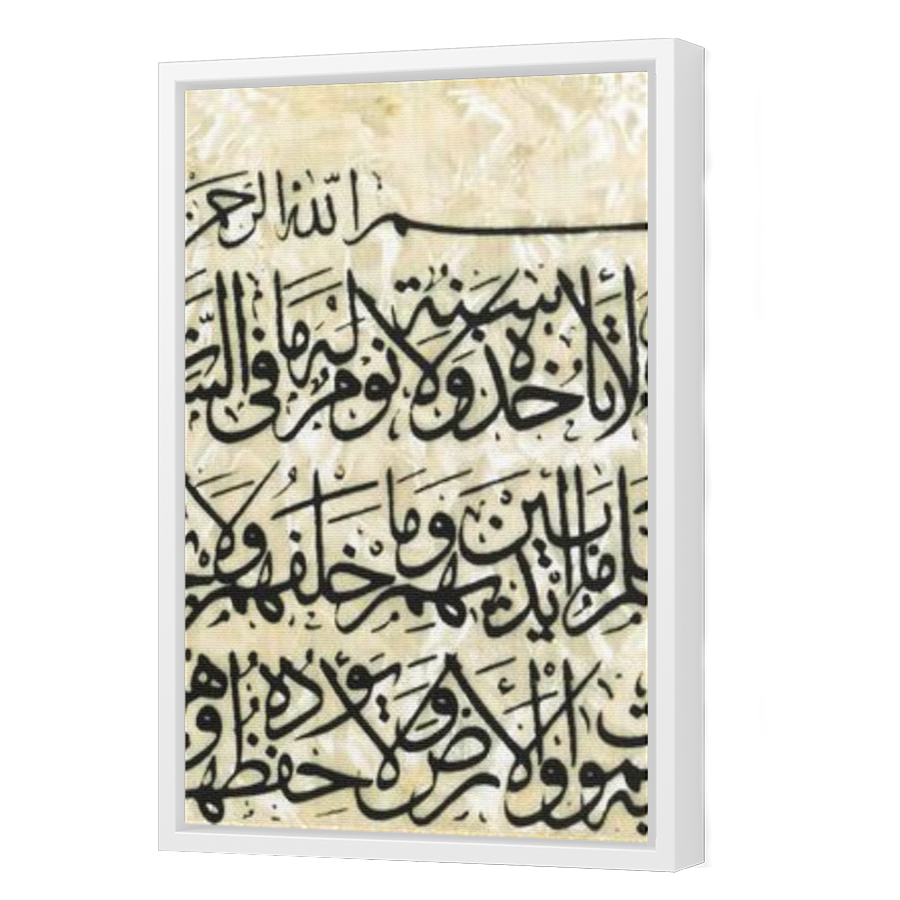 ـسم الله الرحمـ
لا تأخذه سنة ولا نوم له ما في السـ
ـلم ما بين أيديهم وما خلفهم ولا
ـموات والأرض ولا يؤده حفظهـ وهـ